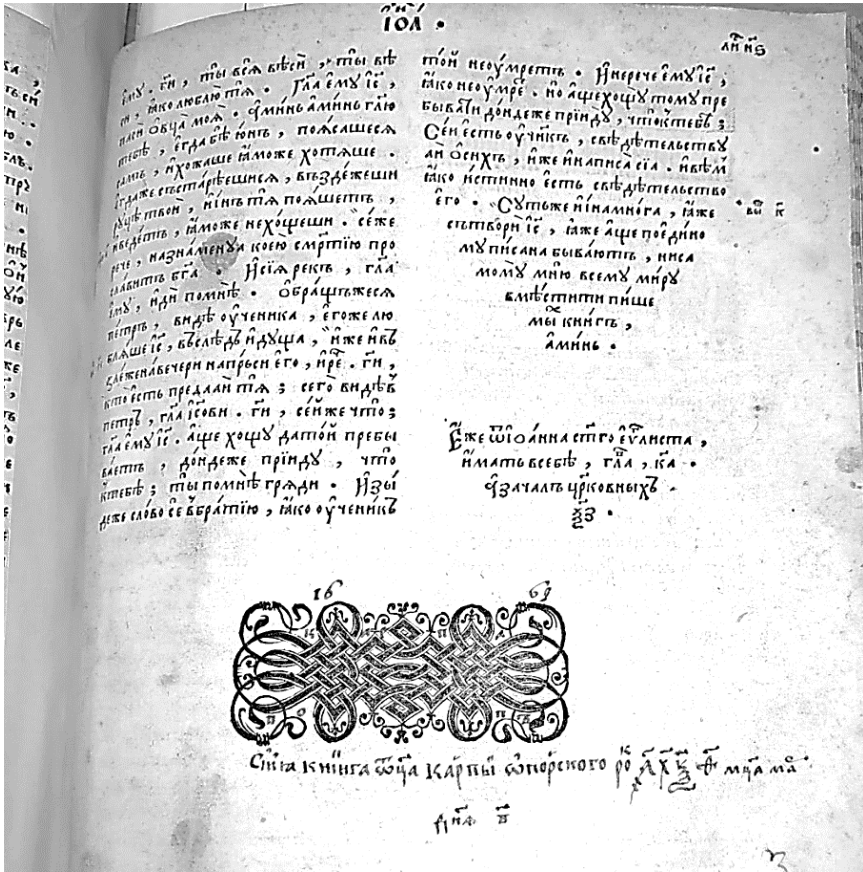 ІѠА ·
ему . ги , ты всѧ вѣси , ты вѣ
си , ꙗко люблю тѧ . Гла ему іс ,
паси овцѧ моѧ . аминь аминь глю
тебѣ , егда бѣ юнъ , поꙗсашесѧ
самъ , и хожаше ꙗможе хотѧше .
егдаже състарѣешисѧ , въздежеши
руцѣ твои , и инъ тѧ поꙗшетъ ,
и ведетъ , ꙗможе нехощеши . се же
рече , назнаменуа коею смртію про
славитъ бга . И сіꙗ рекъ , гла
ему , иди помнѣ . обращьжесѧ
петръ , видѣ оученика , егоже лю
блѧше іс , въслѣдъ идуща , иже и въ
злеже на вечери напръси его , и ре . ги ,
кто есть предаай тѧ ; сего видѣв
петръ , гла ісови . ги , сей же что ;
гла ему іс . аще хощу да той пребы
ваетъ , дондеже пріиду , что
к тебѣ ; ты помнѣ грѧди . Изы
деже слово се в братію , ꙗко оученикъ
той неоумретъ . И нерече ему іс ,
ꙗко неоумре . но аще хощу тому пре
бывати дондеже пріиду , что к тебѣ ;
Сей есть оученикъ , свѣдѣтельству
ай о сихъ , иже и написа сіа . и вѣмъ
ꙗко истинно есть свѣдѣтельство
его . Суть же и ина многа , ꙗже
сътвори іс , ꙗже аще поедино
му писана бываютъ , ни са
мому мню всему миру
вмѣстити пише
мы книгъ ,
аминь .
Еже ѿ іоанна стго еѵлиста ,
имать в себѣ , глав , ка .
а зачалъ црковныхъ
ѯз .
16 69
Сіꙗ книга ѿца Карпы